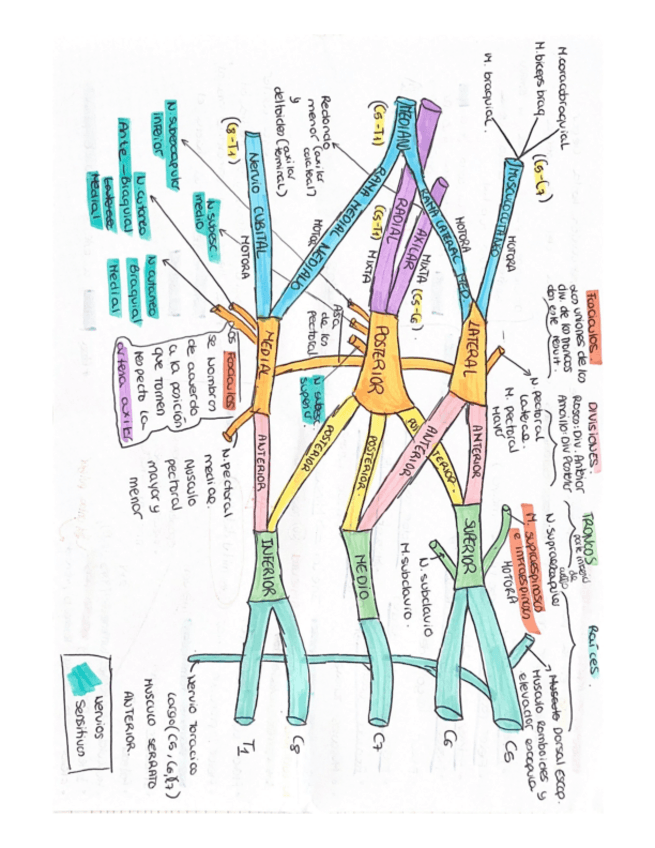 Raíces.
TRONCOS
DIVISIONES.
Rosa: Div. Anterior
Amarillo: Div Posterior
Fascículos.
M. coracobraquial
M. biceps braq.
M. braquial.
(C5-C7)
MUSCULOCUTANEO
MOTORA
N. supraescapular
M. supraespinoso
e infraespinoso
MOTORA
Dorsal escap.
Musculo romboides y
elevador escapula
C5
C6
C7
C8
T1
SUPERIOR
MEDIO
INFERIOR
N. subclavio
M. subclavio.
ANTERIOR
POSTERIOR.
ANTERIOR
POSTERIOR.
POSTERIOR
ANTERIOR
LATERAL
POSTERIOR
MEDIAL
N pectoral
Lateral.
M. pectoral
Mayor
RAMA LATERAL MED.
MOTORA
MEDIANO
(C5-T1)
RAMA MEDIAL MEDIANO
RADIAL
(C5-T1)
MIXTA
AXILAR
MIXTA
(C5-C6)
Redondo
menor (axilar
y
deltoides (axilar
terminal)
Nervio CUBITAL
MOTORA
(C8-T1)
Asa
de los
pectoral
N subesc
superior
N. subesc.
medio
N. subescapular
inferior
N. cutaneo
Ante-Braquial
Medial
N cutaneo
Braquial
Medial
LOS Fascículos
se Nombran
de acuerdo
a la posición
que tomen
respecto la
arteria axilar
N. pectoral
medial.
Musculo
pectoral
mayor y
menor
Nervio Toracico
Largo (C5, C6, C7)
MUSCULO SERRATO
ANTERIOR.
Nervios
Sensitivos